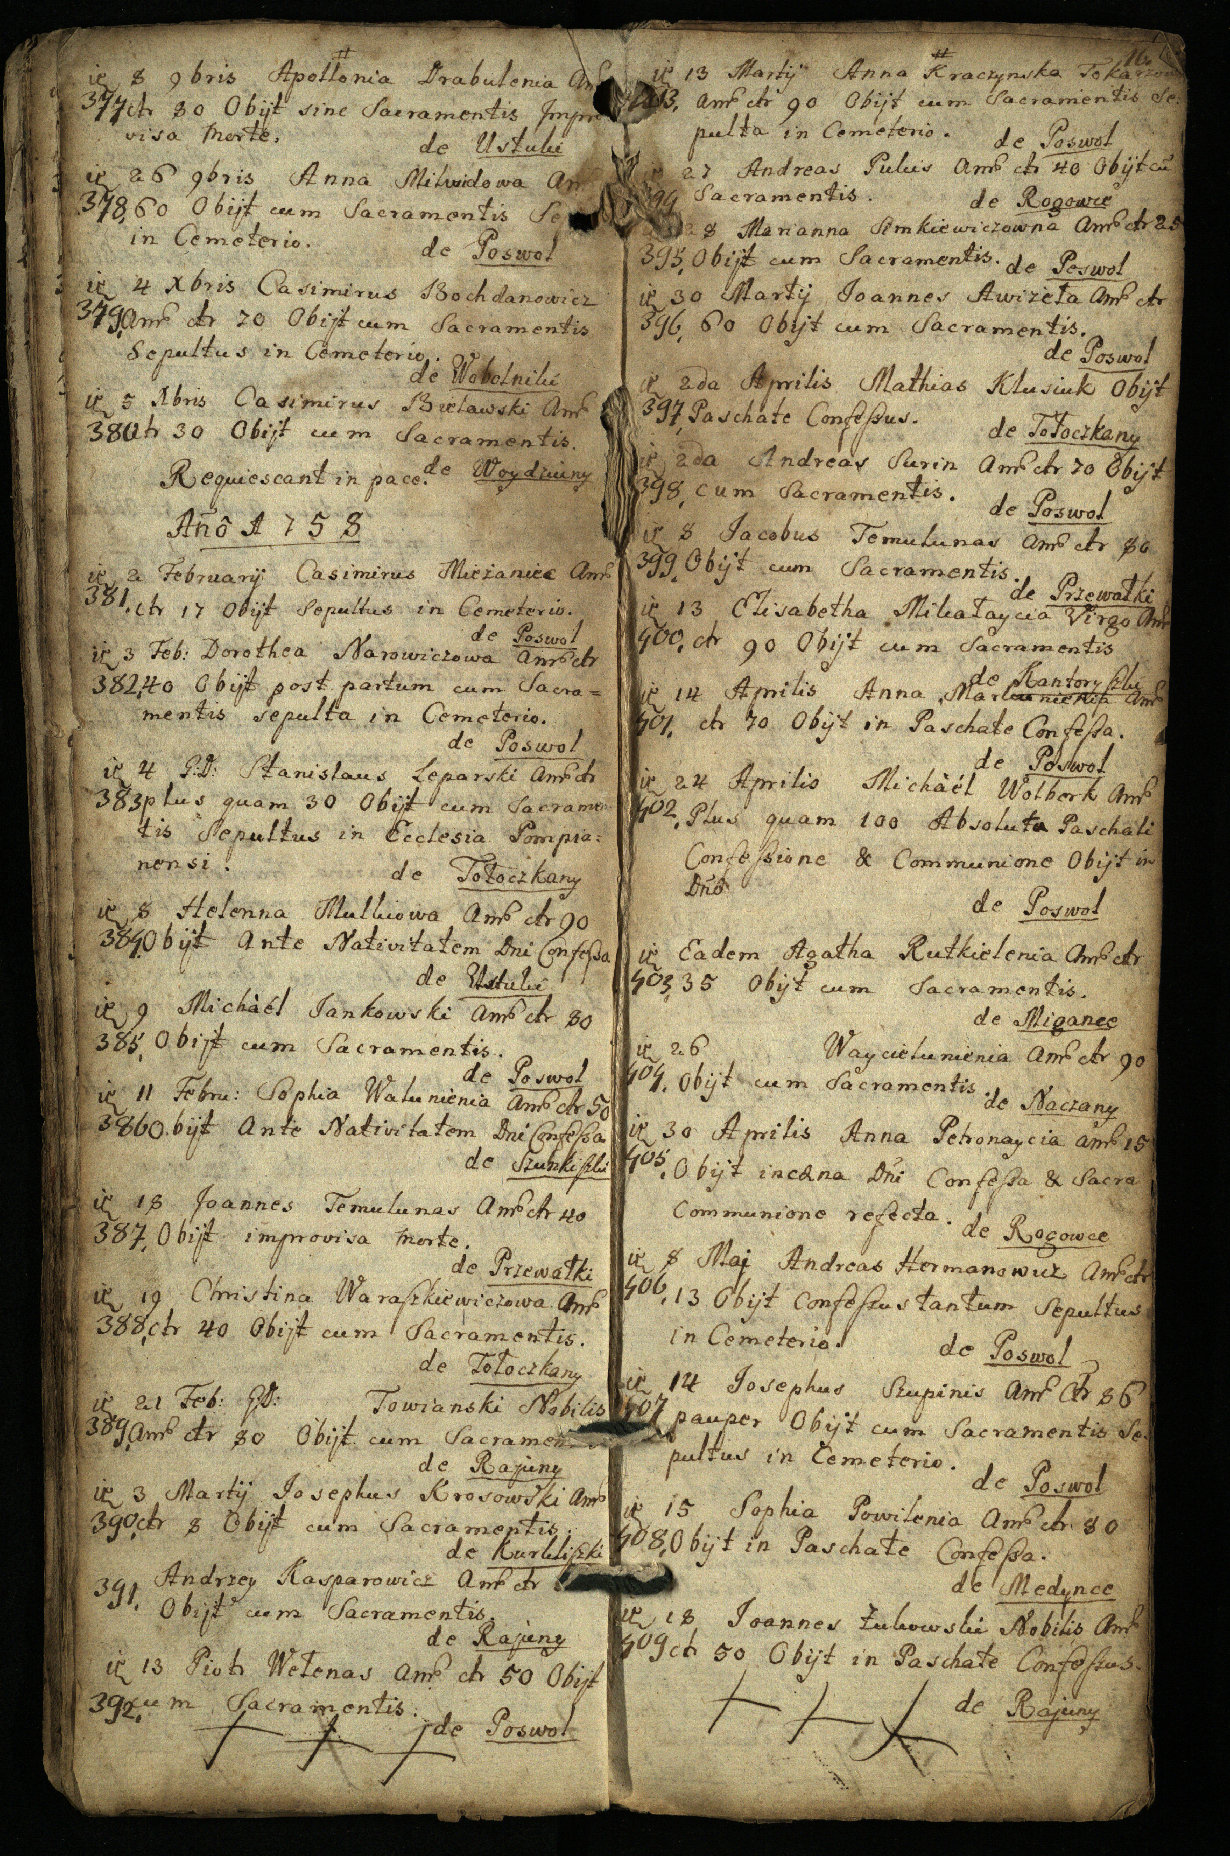 ie 8 9bris Apollonia Drabulenia
377 ctr 80 Obijt sine Sacramentis
visa Morte.
de Ustuki
ie 26 9bris Anna Milwidowa
378, 60 Obijt cum Sacramentis Se
in Cemeterio.
de Poswol
ie 4 Xbris Casimirus Bochdanowicz
379, Anr ctr 70 Obijt cum Sacramentis
Sepultus in Cemeterio.
de Wobolniki
ie 5 Xbris Casimirus Bielawski Anr
380 ctr 30 Obijt cum Sacramentis.
Requiescant in pace. de Woydziuny
Año A 1758
ie 2 Februarij Casimirus Mieżaniec Anr
381. ctr 17 Obijt Sepultus in Cemeterio.
de Poswol
ie 3 Feb: Dorothea Narowiczowa Anr ctr
382, 40 Obijt post partum cum Sacra=
mentis sepulta in Cemeterio.
de Poswol
ie 4 G:D: Stanislaus Leparski Anr ctr
383 plus quam 30 Obijt cum Sacramen
tis Sepultus in Ecclesia Pompia=
nensi.
de Tołoczkany
ie 8 Helenna Mulkiowa Anr ctr 90
384, Obijt Ante Nativitatem Dni Confessa
de Ustuki
ie 9 Michàél Jankowski Anr ctr 80
385, Obijt cum Sacramentis.
de Poswol
ie 11 Febru: Sophia Walunienia Anr ctr 50
386 Obijt Ante Nativitatem Dni Confessa
de Szunkiszki
ie 18 Joannes Temulunas Anr ctr 40
387, Obijt improvisa Morte.
de Przewałki
ie 19 Christina Waraszkiewiczowa Anr
388, ctr 40 Obijt cum Sacramentis.
de Tołoczkany
ie 21 Feb: G:D: Towianski Nobilis
389, Anr ctr 80 Obijt cum Sacramen
de Rajuny
ie 3 Martij Josephus Krosowski Anr
390, ctr 8 Obijt cum Sacramentis.
de Kurkliszki
391. Andrzey Kasparowicz Anr ctr
Obijt cum Sacramentis.
de Rajuny
ie 13 Piotr Wełenas Anr ctr 50 Obijt
392, cum Sacramentis.
de Poswol
16
ie 13 Martij Anna Kraczynska
Anr ctr 90 Obijt cum Sacramentis Se:
pulta in Cemeterio. de Poswol
27 Andreas Pulus Anr ctr 40 Obijt cū
Sacramentis. de Rogowce
28 Marianna Simkiewiczowna Anr ctr 25
395, Obijt cum Sacramentis. de Poswol
ie 30 Martij Joannes Awiżeta Anr ctr
396, 60 Obijt cum Sacramentis.
de Poswol
ie 2da Aprilis Mathias Klusiuk Obijt
397, Paschate Confessus.
de Tołoczkany
ie 2da Andreas Surin Anr ctr 70 Obijt
398, cum Sacramentis.
de Poswol
ie 8 Jacobus Temulunas Anr ctr 80
399. Obijt cum Sacramentis.
de Przewałki
ie 13 Elisabetha Mikałaycia Virgo Anr
400, ctr 90 Obijt cum Sacramentis
de Kantoryszki
ie 14 Aprilis Anna Markunienia Anr
401. ctr 70 Obijt in Paschate Confessa.
de Poswol
ie 24 Aprilis Michàél Wolbork Anr
402. Plus quam 100 Absoluta Paschali
Confessione & Communione Obijt in
Dño
de Poswol
ie Eadem Agatha Rutkielenia Anr ctr
403, 35 Obijt cum Sacramentis.
de Miganee
ie 26 Waycielunienia Anr ctr 90
404. Obijt cum Sacramentis.
de Naczany
ie 30 Aprilis Anna Petronaycia Anr 15
405. Obijt in cæna Dñi Confessa & Sacra
Communione refecta.
de Rogowce
ie 8 Maj Andreas Hermanowicz Anr ctr
406. 13 Obijt Confessus tantum Sepultus
in Cemeterio.
de Poswol
ie 14 Josephus Szupinis Anr ctr 86
407 pauper Obijt cum Sacramentis Se:
pultus in Cemeterio.
de Poswol
ie 15 Sophia Powilenia Anr ctr 80
408, Obijt in Paschate Confessa.
de Medynce
ie 18 Joannes Żukowski Nobilis Anr
409 ctr 50 Obijt in Paschate Confessus.
de Rajuny